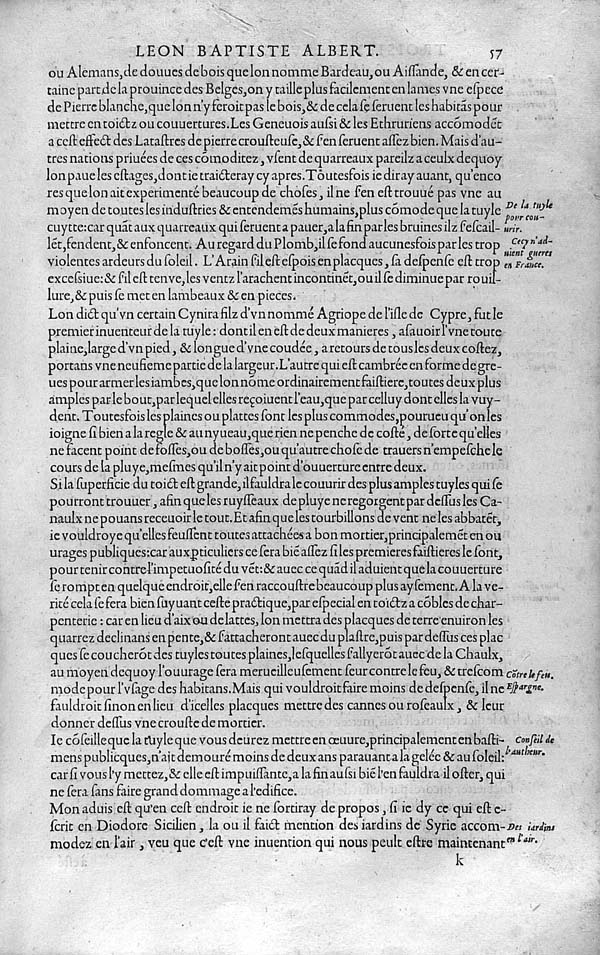 LEON BAPTISTE ALBERT. 57
ou Alemans, de douues de bois que lon nomme Bardeau, ou Aiſſande, & en cer-
taine part de la prouince des Belges, on y taille plus facilement en lames vne eſpece
de Pierre blanche, que lon n'y feroit pas le bois, & de cela ſe ſeruent les habitãs pour
mettre en toictz ou couuertures. Les Geneuois auſsi & les Ethruriens accõmodẽt
a ceſt effect des Lataſtres de pierre crouſteuſe, & ſ'en ſeruent aſſez bien. Mais d'au-
tres nations priuées de ces cõmoditez, vſent de quarreaux pareilz a ceulx dequoy
lon paue les eſtages, dont ie traicteray cy apres. Toutesfois ie diray auant, qu'enco
res que lon ait experimenté beaucoup de choſes, il ne ſ'en eſt trouué pas vne au
moyen de toutes les induſtries & entendemẽs humains, plus cõmode que la tuyle
De la tuyle
pour cou-
urir.
cuytte: car quãt aux quarreaux qui ſeruent a pauer, a la fin par les bruines ilz ſ'eſcail-
lẽt, fendent, & enfoncent. Au regard du Plomb, il ſe fond aucunesfois par les trop
Cecy n'ad-
uient gueres
en France.
violentes ardeurs du ſoleil. L'Arain ſ'il eſt eſpois en placques, ſa deſpenſe eſt trop
exceſsiue: & ſ'il eſt tenve, les ventz l'arachent incontinẽt, ou il ſe diminue par rouil-
lure, & puis ſe met en lambeaux & en pieces.
Lon dict qu'vn certain Cynira filz d'vn nommé Agriope de l'iſle de Cypre, fut le
premier inuenteur de la tuyle: dont il en eſt de deux manieres, aſauoir l'vne toute
plaine, large d'vn pied, & longue d'vne coudée, a retours de tous les deux coſtez,
portans vne neufieme partie de la largeur. L'autre qui eſt cambrée en forme de gre-
ues pour armer les iambes, que lon nõme ordinairement faiſtiere, toutes deux plus
amples par le bout, par lequel elles reçoiuent l'eau, que par celluy dont elles la vuy-
dent. Toutesfois les plaines ou plattes ſont les plus commodes, pourueu qu'on les
ioigne ſi bien a la regle & au nyueau, que rien ne penche de coſté, de ſorte qu'elles
ne facent point de foſſes, ou de boſſes, ou qu'autre choſe de trauers n'empeſche le
cours de la pluye, meſmes qu'il n'y ait point d'ouuerture entre deux.
Si la ſuperficie du toict eſt grande, il fauldra le couurir des plus amples tuyles qui ſe
pourront trouuer, afin que les ruyſſeaux de pluye ne regorgent par deſſus les Ca-
naulx ne pouans receuoir le tout. Et afin que les tourbillons de vent ne les abbatẽt,
ie vouldroye qu'elles feuſſent toutes attachées a bon mortier, principalemẽt en ou
urages publiques: car aux pticuliers ce ſera biẽ aſſez ſi les premieres faiſtieres le ſont,
pour tenir contre l'impetuoſité du vẽt: & auec ce quãd il aduient que la couuerture
ſe rompt en quelque endroit, elle ſ'en raccouſtre beaucoup plus ayſement. A la ve-
rité cela ſe fera bien ſuyuant ceſte practique, par eſpecial en toictz a cõbles de char-
penterie: car en lieu d'aix ou de lattes, lon mettra des placques de terre enuiron les
quarrez declinans en pente, & ſ'attacheront auec du plaſtre, puis par deſſus ces plac
ques ſe coucherõt des tuyles toutes plaines, leſquelles ſ'allyerõt auec de la Chaulx,
au moyen dequoy l'ouurage ſera merueilleuſement ſeur contre le feu, & treſcom
Cõtre le feu.
mode pour l'vſage des habitans. Mais qui vouldroit faire moins de deſpenſe, il ne
Eſpargne.
fauldroit ſinon en lieu d'icelles placques mettre des cannes ou roſeaulx, & leur
donner deſſus vne crouſte de mortier.
Ie cõſeille que la tuyle que vous deurez mettre en œuure, principalement en baſti-
Conſeil de
l'autheur.
mens publicques, n'ait demouré moins de deux ans parauant a la gelée & au ſoleil:
car ſi vous l'y mettez, & elle eſt impuiſſante, a la fin auſsi biẽ l'en fauldra il oſter, qui
ne ſera ſans faire grand dommage a l'edifice.
Mon aduis eſt qu'en ceſt endroit ie ne ſortiray de propos, ſi ie dy ce qui eſt e-
ſcrit en Diodore Sicilien, la ou il faict mention des iardins de Syrie accom-
Des iardins
en l'air.
modez en l'air, veu que c'eſt vne inuention qui nous peult eſtre maintenant
k